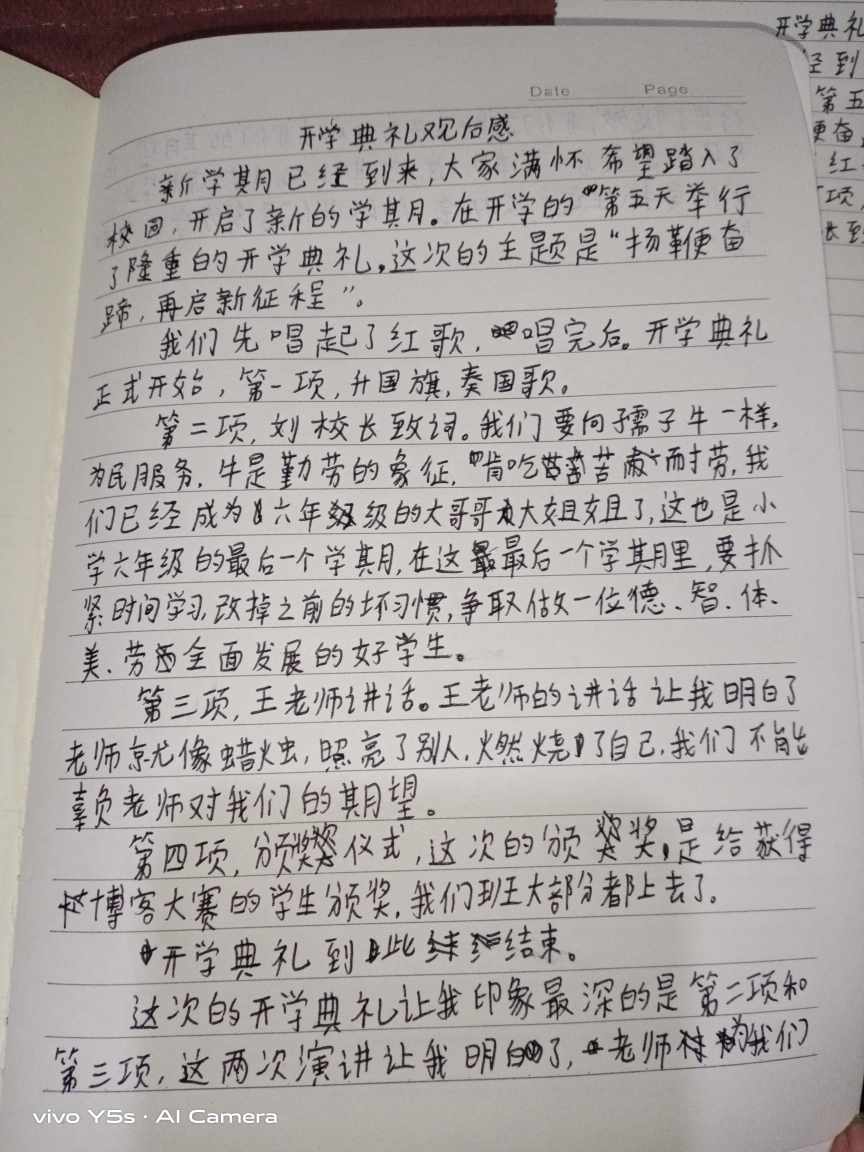 Date Page
开学典礼观后感
新学期已经到来,大家满怀希望踏入了
校园,开启了新的学期。在开学的第五天举行
了隆重的开学典礼。这次的主题是“扬鞭奋
蹄,再启新征程”。
我们先唱起了红歌,唱完后。开学典礼
正式开始,第一项,升国旗,奏国歌。
第二项,刘校长致词。我们要向孺子牛一样,
为民服务,牛是勤劳的象征,肯吃苦而劳,我
们已经成为六年级的大哥哥大姐姐了,这也是小
学六年级的最后一个学期,在这最后一个学期里,要抓
紧时间学习,改掉之前的坏习惯,争取做一位德、智、体、
美、劳全面发展的好学生。
第三项,王老师讲话。王老师的讲话让我明白了
老师就像蜡烛,照亮了别人,燃烧了自己,我们不能
辜负老师对我们的期望。
第四项,颁奖仪式,这次的颁奖,是给获得
博客大赛的学生颁奖,我们班大部分都上去了。
开学典礼到此结束。
这次的开学典礼让我印象最深的是第二项和
第三项,这两次演讲让我明白了,老师为我们
开学典礼
经到
第五
便奋
红
项,
长致
vivo Y5s · AI Camera